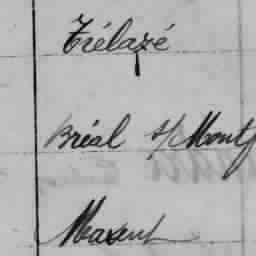 Trélazé
Bréal s/Montf
Maxent